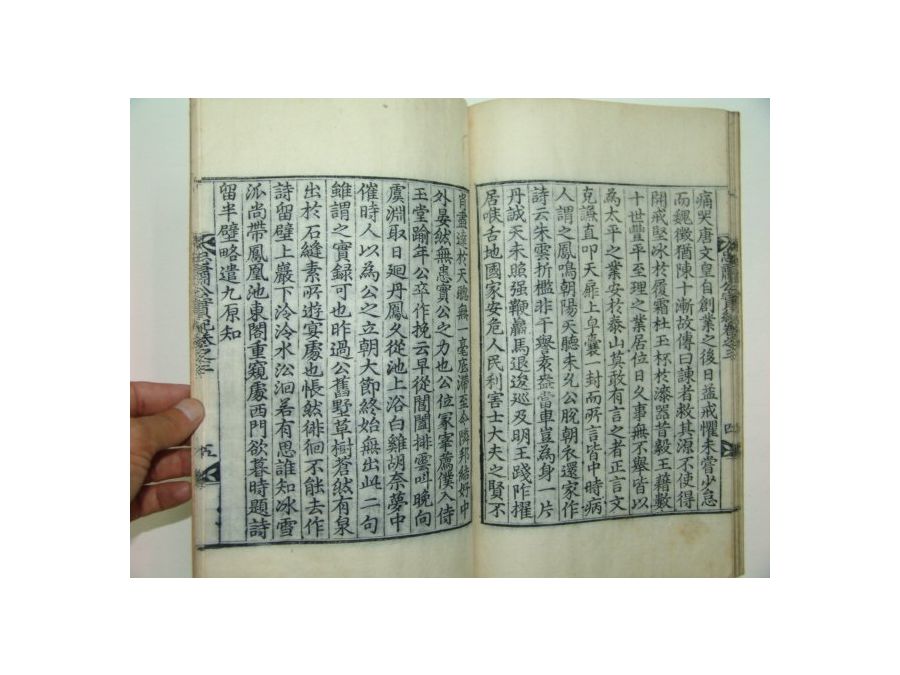 痛哭唐文皇自創業之後日益戒懼未嘗少怠
而魏徵猶陳十漸故傳曰諫者救其源不使得
開戒堅冰於履霜杜玉杯於漆器昔殷王藉數
十世豊平至理之業居位日久事無不舉皆以
為太平之業安於泰山莫敢有言之者正言文
克謙直叩天扉上皁囊一封而所言皆中時病
人謂之鳳鳴朝陽天聽未允公脫朝衣還家作
詩云朱雲折檻非干譽袁盎當車豈為身一片
丹誠天未照强鞭羸馬退逡巡及明王踐阼擢
居喉舌地國家安危人民利害士大夫之賢不
肖盡達於天聽無一毫底滯至令隣邦結好中
外晏然無患實公之力也公位冢宰薦僕入侍
玉堂踰年公卒作挽云早從閶闔排雲叫晚向
虞淵取日廻丹鳳久從池上浴白雞胡奈夢中
催時人以為公之立朝大節終始無出此二句
雖謂之實録可也昨過公舊墅草樹蒼然有泉
出於石縫素所遊宴處也悵然徘徊不能去作
詩留壁上巖下泠泠水㳂洄若有思誰知冰雪
派尚帶鳳凰池東閣重窺處西門欲暮時題詩
留半壁略遣九原知
忠肅公實紀卷之三
五